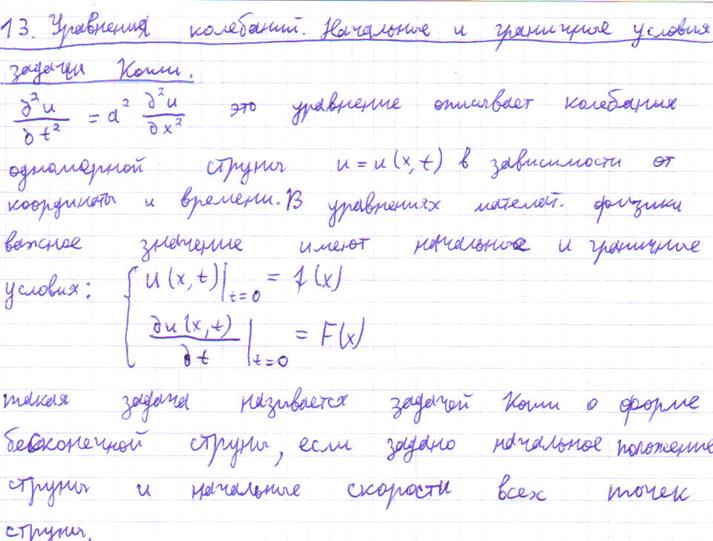 13. Уравнения колебаний. Начальные и граничные условия
задачи Коши.
∂²u/∂t² = a² ∂²u/∂x² это уравнение описывает колебания
одномерной струны u = u(x,t) в зависимости от
координаты и времени. В уравнениях математ. физики
важное значение имеют начальные и граничные
условия: { u(x,t)|t=0 = f(x)
∂u(x,t)/∂t |t=0 = F(x)
такая задача называется задачей Коши о форме
бесконечной струны, если задано начальное положение
струны и начальные скорости всех точек
струны.